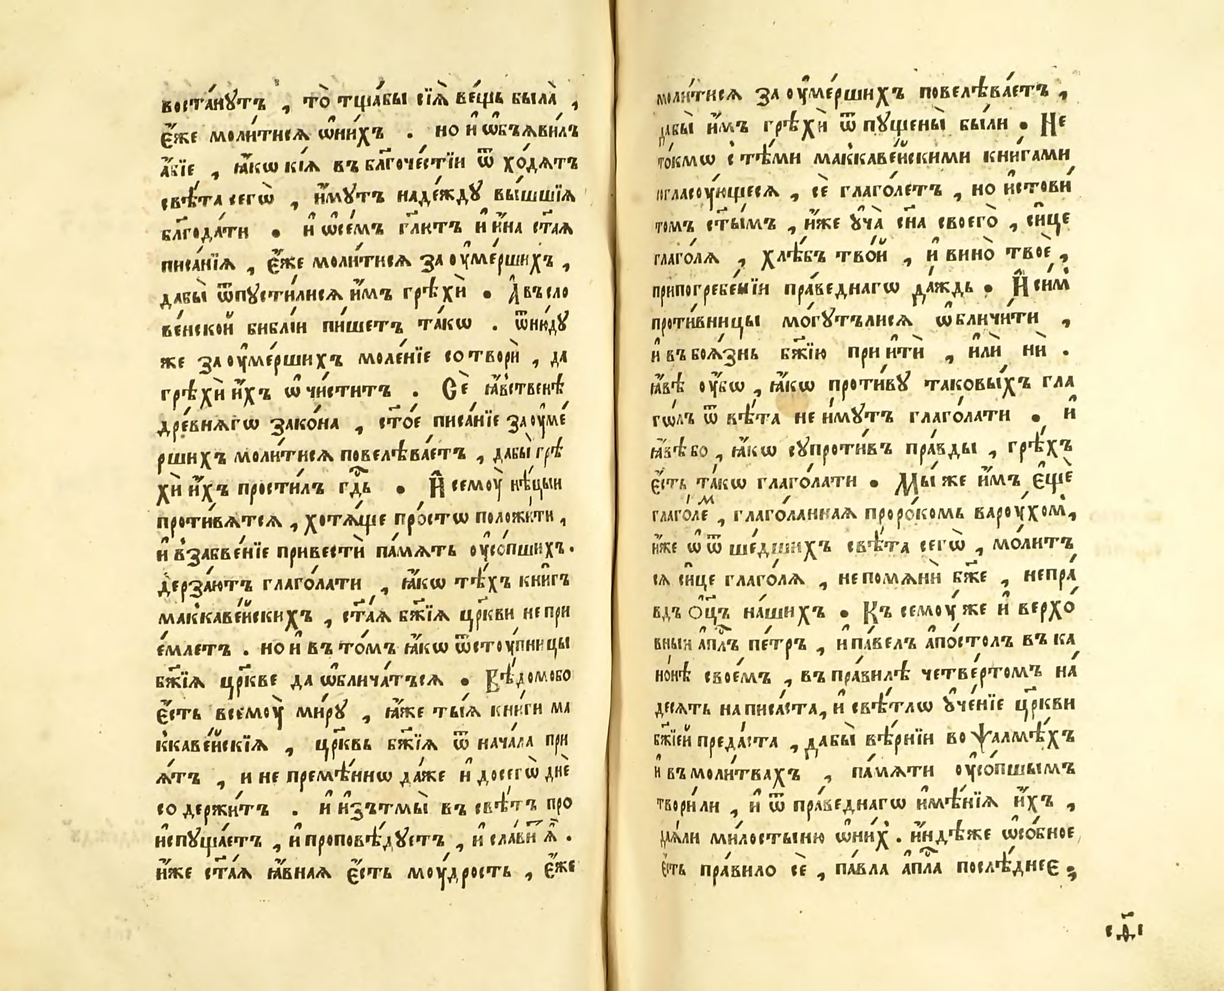 востанꙋтъ , то̀ тщабы сїѧ̀ ве́щь была̀ ,
є҆́же моли́тисѧ ѡ҆ни́хъ . но и҆ ѡ҆бъѧви́лъ
а҆́кїе , ꙗ҆́кѡ кїѧ̀ въ блгоче́стїи ѿ хо́дѧтъ
свѣ́та сегѡ̀ , и҆́мꙋтъ наде́ждꙋ вы́шшїѧ
блгода́ти . и҆ ѡ҆се́мъ гл҃итъ и҆ и҆́на ст҃аѧ
писа́нїѧ , є҆́же моли́тисѧ за ᲂу҆ме́ршихъ ,
дабы̀ ѿпꙋсти́лисѧ и҆́мъ грѣхѝ . А҆ въ сло
ве́нской библі́и пи́шетъ та́кѡ . ѿню́дꙋ
же за ᲂу҆ме́ршихъ моле́нїе сотворѝ , да
грѣхѝ и҆́хъ ѡ҆чи́ститъ . Сѐ ꙗ҆́вственѣ
дре́внѧгѡ зако́на , ст҃о́е писа́нїе за ᲂу҆ме́
ршихъ моли́тисѧ повелѣва́етъ , дабы̀ грѣ
хѝ и҆́хъ прости́лъ гд҃ь . И҆ семоꙋ̀ нѣ́цыи
проти́вѧтсѧ , хотѧ́ще про́стѡ положи́ти ,
и҆ в̾забве́нїе привестѝ па́мѧть ᲂу҆со́пшихъ .
дерза́ютъ глаго́лати , ꙗ҆́кѡ тѣ́хъ кни́гъ
маккаве́йскихъ , ст҃а́ѧ бж҃їѧ цр҃кви не при
е́млетъ . но и҆ въ то́мъ ꙗ҆́кѡ ѿстоꙋ́пницы
бж҃їѧ цр҃кве да ѡ҆блича́тъсѧ . Вѣ́домо бо
є҆́сть всемоꙋ̀ ми́рꙋ , ꙗ҆́же ты́ѧ кни́ги ма
ккаве́йскїѧ , цр҃квь бж҃їѧ ѿ нача́ла при
ѧ́тъ , и҆ не премѣ́ннѡ да́же и҆ досегѡ̀ днѐ
содержи́тъ . и҆ и҆зъ тмы̀ въ свѣ́тъ про
испꙋща́етъ , и҆ проповѣ́дꙋетъ , и҆ сла́вит ѧ҆̀ .
и҆́же ст҃аѧ ꙗ҆́внаѧ є҆́сть моꙋ́дрость , є҆́же
моли́тисѧ за ᲂу҆ме́ршихъ повелѣва́етъ ,
дабы̀ и҆́мъ грѣхѝ ѿ пꙋщены̀ были . Не
то́кмѡ с̾ тѣ́ми маккаве́йскими кни́гами
согласоꙋ́ющесѧ , сѐ глаго́летъ , но и҆ товѝ
томъ ст҃ы́мъ , и҆́же ᲂу҆ча̀ сн҃а своего̀ , си́це
глаго́лѧ , хлѣ́бъ тво́й , и҆ вино̀ твоѐ ,
при погребе́нїи пра́веднагѡ да́ждь . И҆ си́м
проти́вницы мо́гꙋтълисѧ ѡ҆бличи́ти ,
и҆ въ боѧ́знь бж҃їю прїи́тѝ , и҆лѝ нѝ .
ꙗ҆́вѣ ᲂу҆́бѡ , ꙗ҆́кѡ проти́вꙋ таковы́хъ гла
го́лъ ѿ вѣ́та не и҆́мꙋтъ глаго́лати . и҆
ꙗ҆́вѣ бо , ꙗ҆́кѡ сꙋпроти́въ пра́вды , грѣ́хъ
є҆́сть та́кѡ глаго́лати . Мы́ же и҆́мъ є҆щѐ
глаго́лем , глаго́ланнаѧ проро́комъ вароꙋ́хом ,
и҆́же ѡ҆ ѿше́дшихъ свѣ́та сегѡ̀ , мо́литъ
сѧ си́це глаго́лѧ , не помѧнѝ бж҃е , непра́
вдъ ѻ҆ц҃ъ на́шихъ . Къ семоꙋ́ же и҆ верхо́
вныи а҆пл҃ъ пе́тръ , и҆ па́велъ а҆по́столъ въ ка
но́нѣ свое́мъ , въ пра́вилѣ четве́ртомъ на́
десѧть написа́ста , и҆ свѣ́тлѡ ᲂу҆че́нїе цр҃кви
бж҃їей преда́ста , дабы̀ вѣ́рнїи во ѱалмѣ́хъ
и҆ въ моли́твахъ , па́мѧти ᲂу҆со́пшымъ
твори́ли , и҆ ѿ пра́веднагѡ и҆мѣ́нїѧ и҆́хъ ,
даѧ́ли ми́лостыню ѡ҆ни́х . и҆ндѣ́же ѡ҆со́бное
є҆́сть пра́вило сѐ , па́вла а҆пл҃а послѣ́днее ;
҂д҃